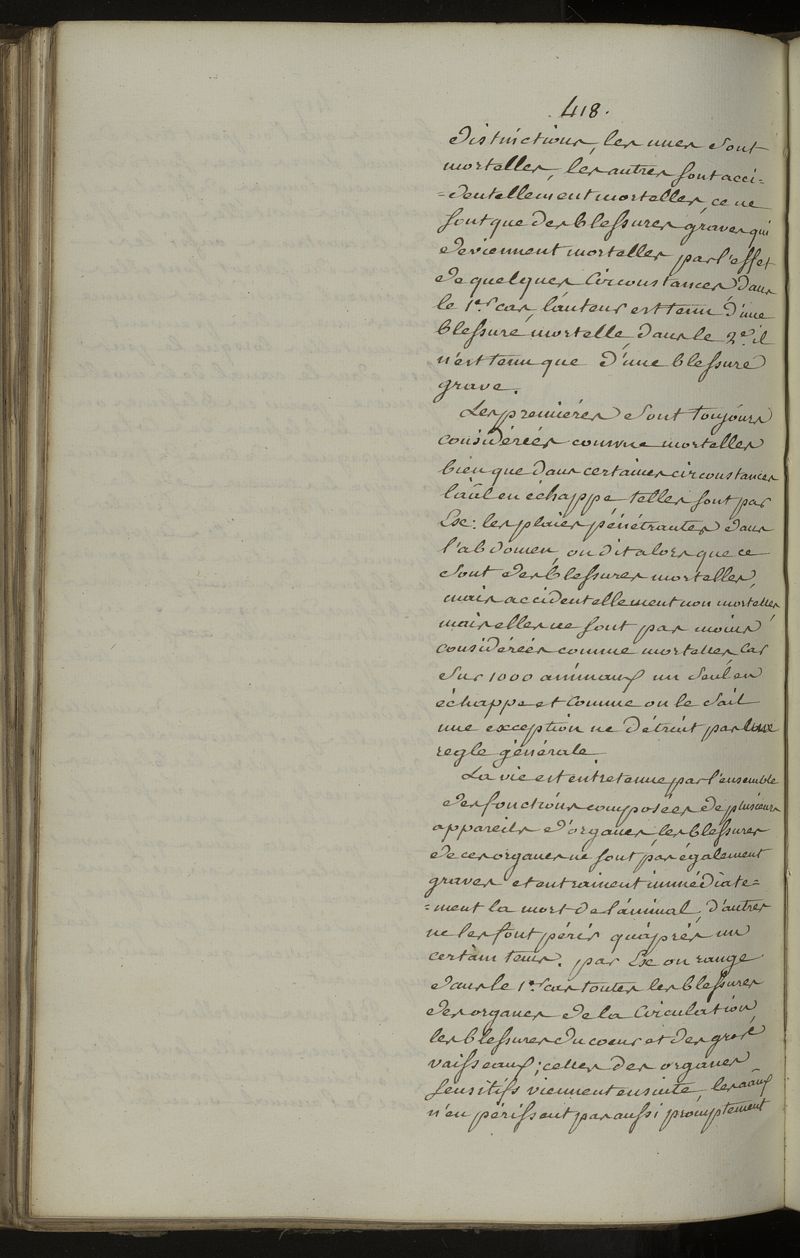 418.
distinctions, les unes sont
mortelles, les autres sont acci=
=dentellement mortelles, ce ne
sont que des blessures graves qui
deviennent mortelles par l'effet
de quelques circonstances dans
le 1er cas, l'auteur est tenu d'une
blessure mortelle, dans le 2e. il
n'est tenu que d'une blessure
grave.
Les premières sont toujours
considérées comme mortelles
bien que dans certaines circonstances
l'aâl en échappe telles sont par
Ex: les plaies pénétrantes dans
l'abdomen, on dit alors que ce
sont des blessures mortelles,
mais accidentellement non mortelles
mais elles ne sont pas moins
considérées comme mortelles car
sur 1000 animaux un seul en
échappe et comme on le sait
une exception ne détruit pas une
regle générale.
La vie est entretenue par l'ensemble
des fonctions composées de plusieurs
appareils d'organes, les blessures
de ces organes ne sont pas également
graves et entrainent immédiate=
=ment la mort de l'animal, d'autres
ne les font périr qu'après un
certain tems. par Ex on range
dans le 1er cas toutes les blessures
des organes de la circulation
les blessures du coeur et des gros
vaisseaux; celles des organes
sensitifs viennent ensuite, les aâux
n'en périssent pas aussi promptement